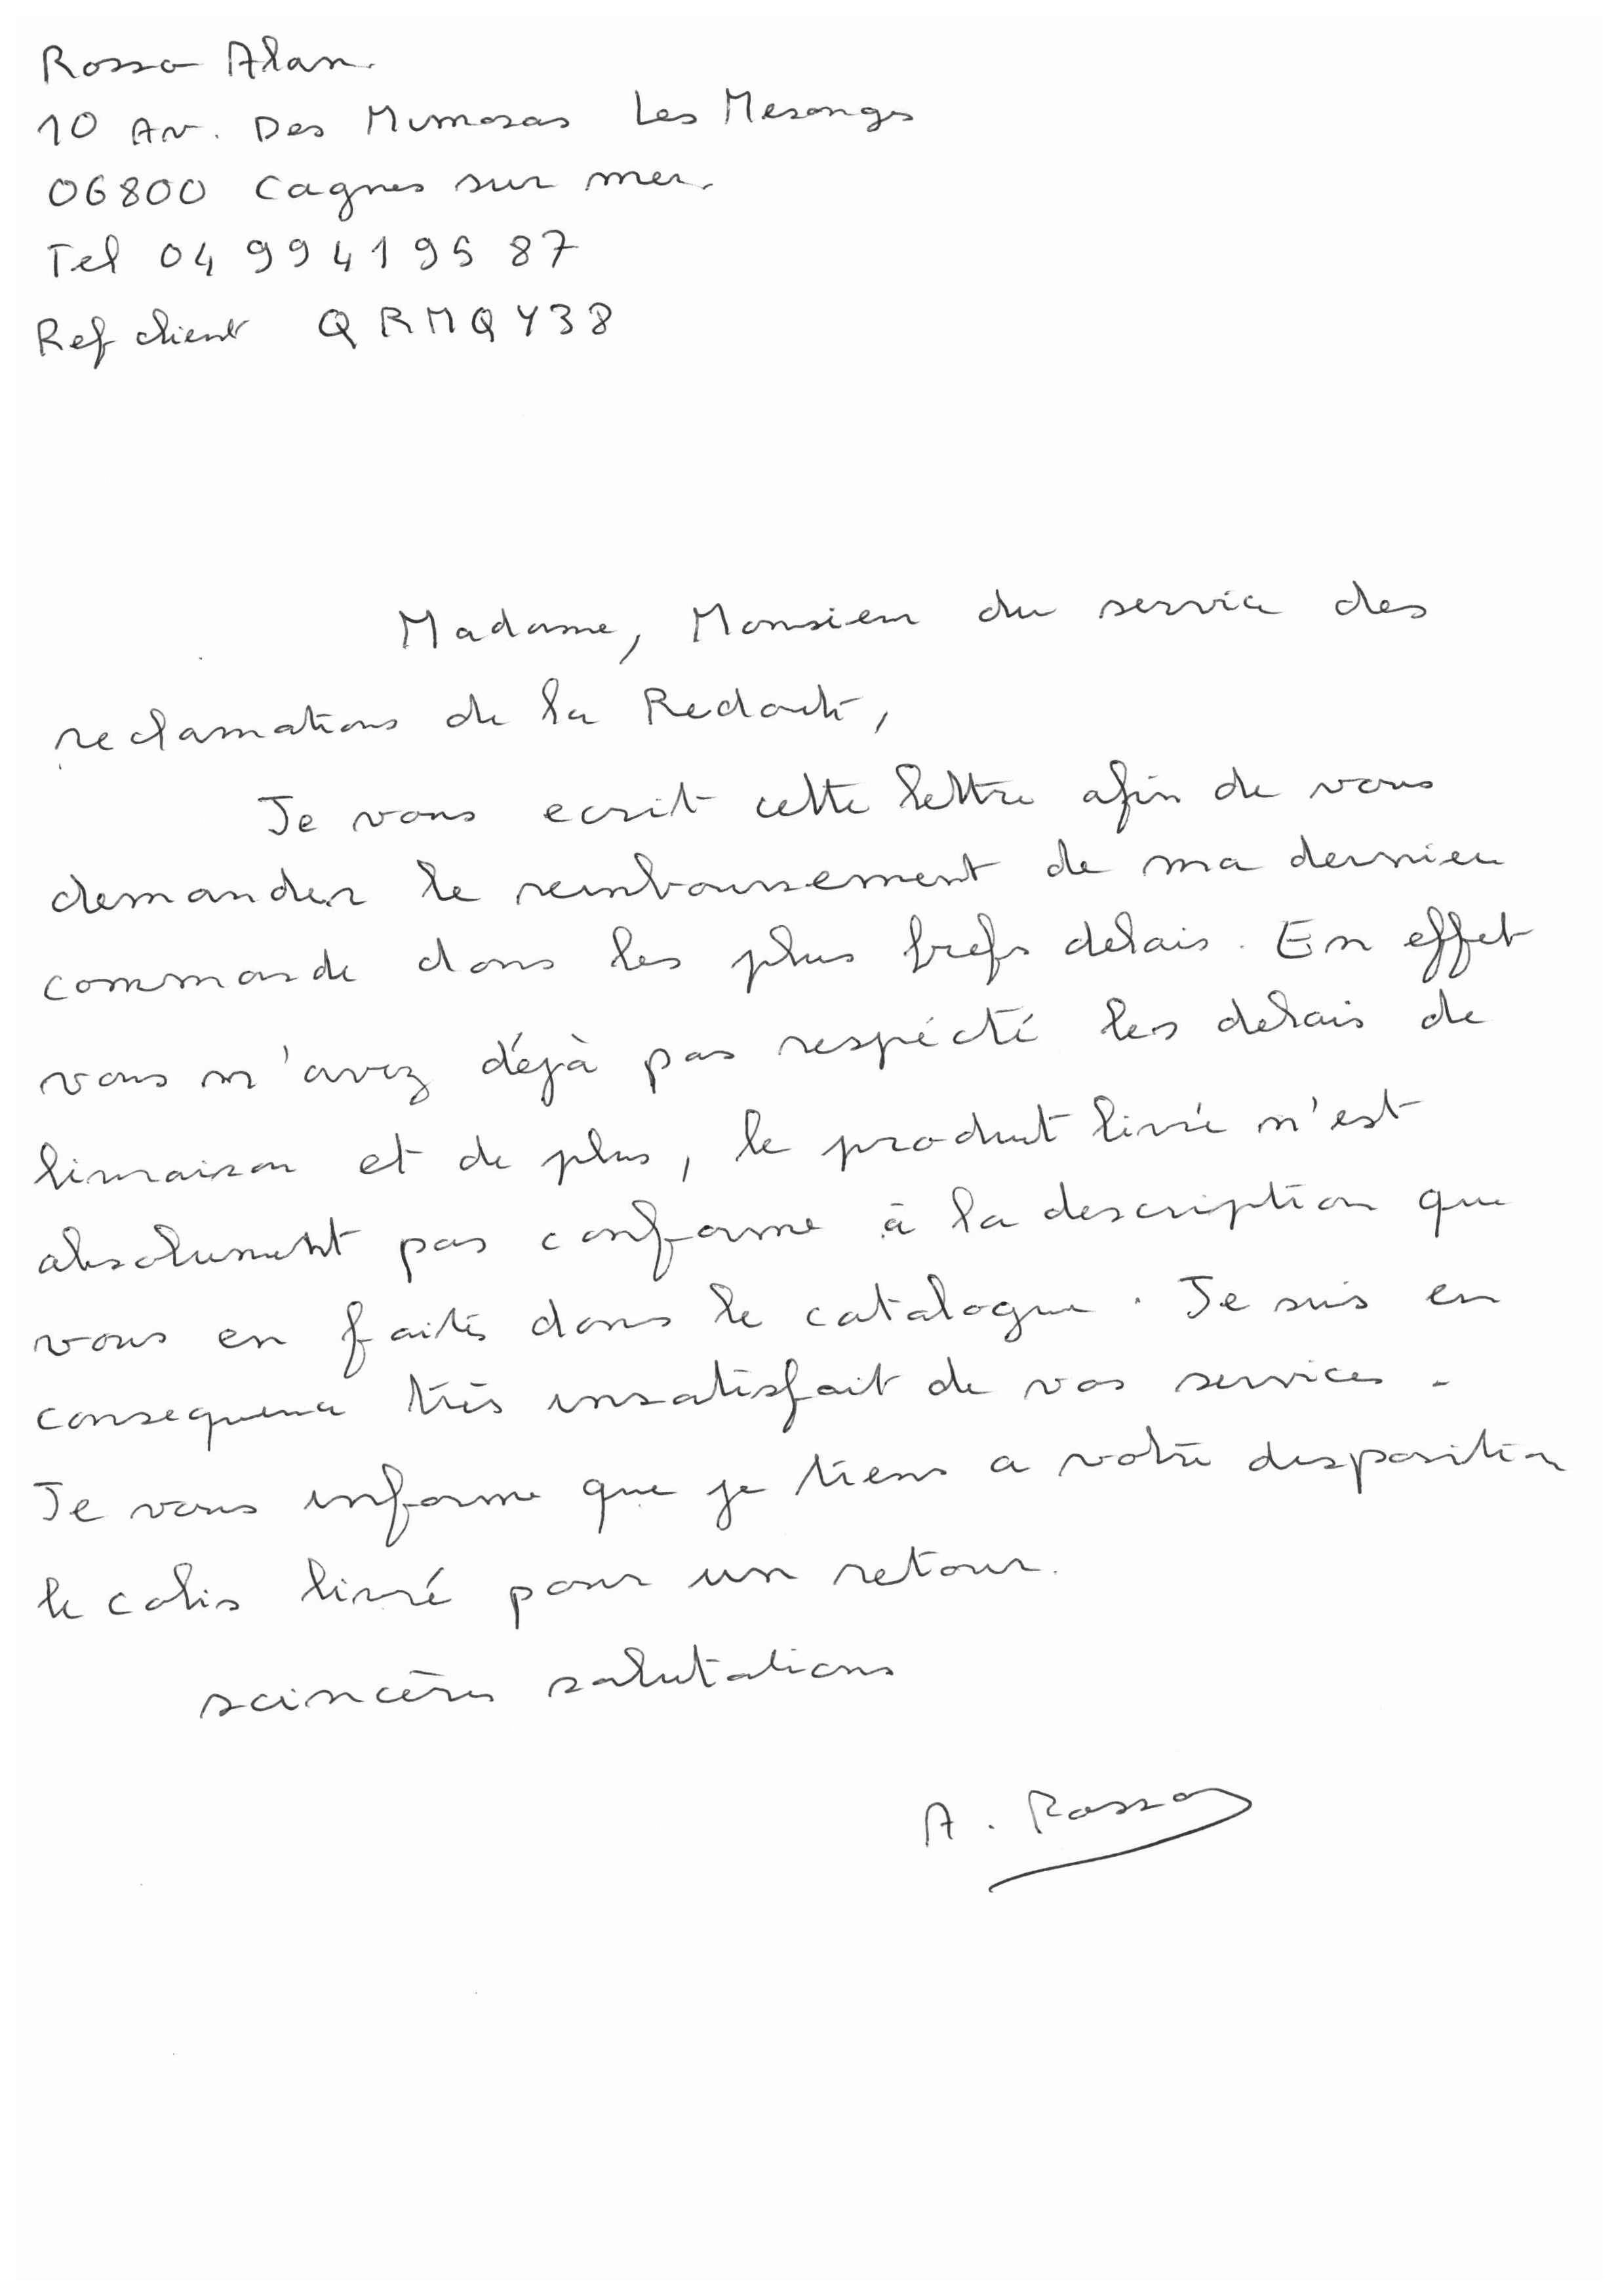 Rosso Alan.
10 Av. Des Mimosas Les Mesanges
06800 Cagnes sur mer.
Tel 04 99 41 95 87
Ref client QRMQY38
Madame, Monsieur du service des
reclamations de la Redoute,
Je vous ecrit cette lettre afin de vous
demander le remboursement de ma derniere
commande dans les plus brefs delais. En effet
vous n'avez déjà pas respécté les delais de
livraison et de plus, le produit livré n'est
absolument pas conforme à la description que
vous en faites dans le catalogue. Je suis en
consequence très insatisfait de vos services.
Je vous informe que je tiens a votre disposition
le colis livré pour un retour.
scincères salutations
A. Rosso